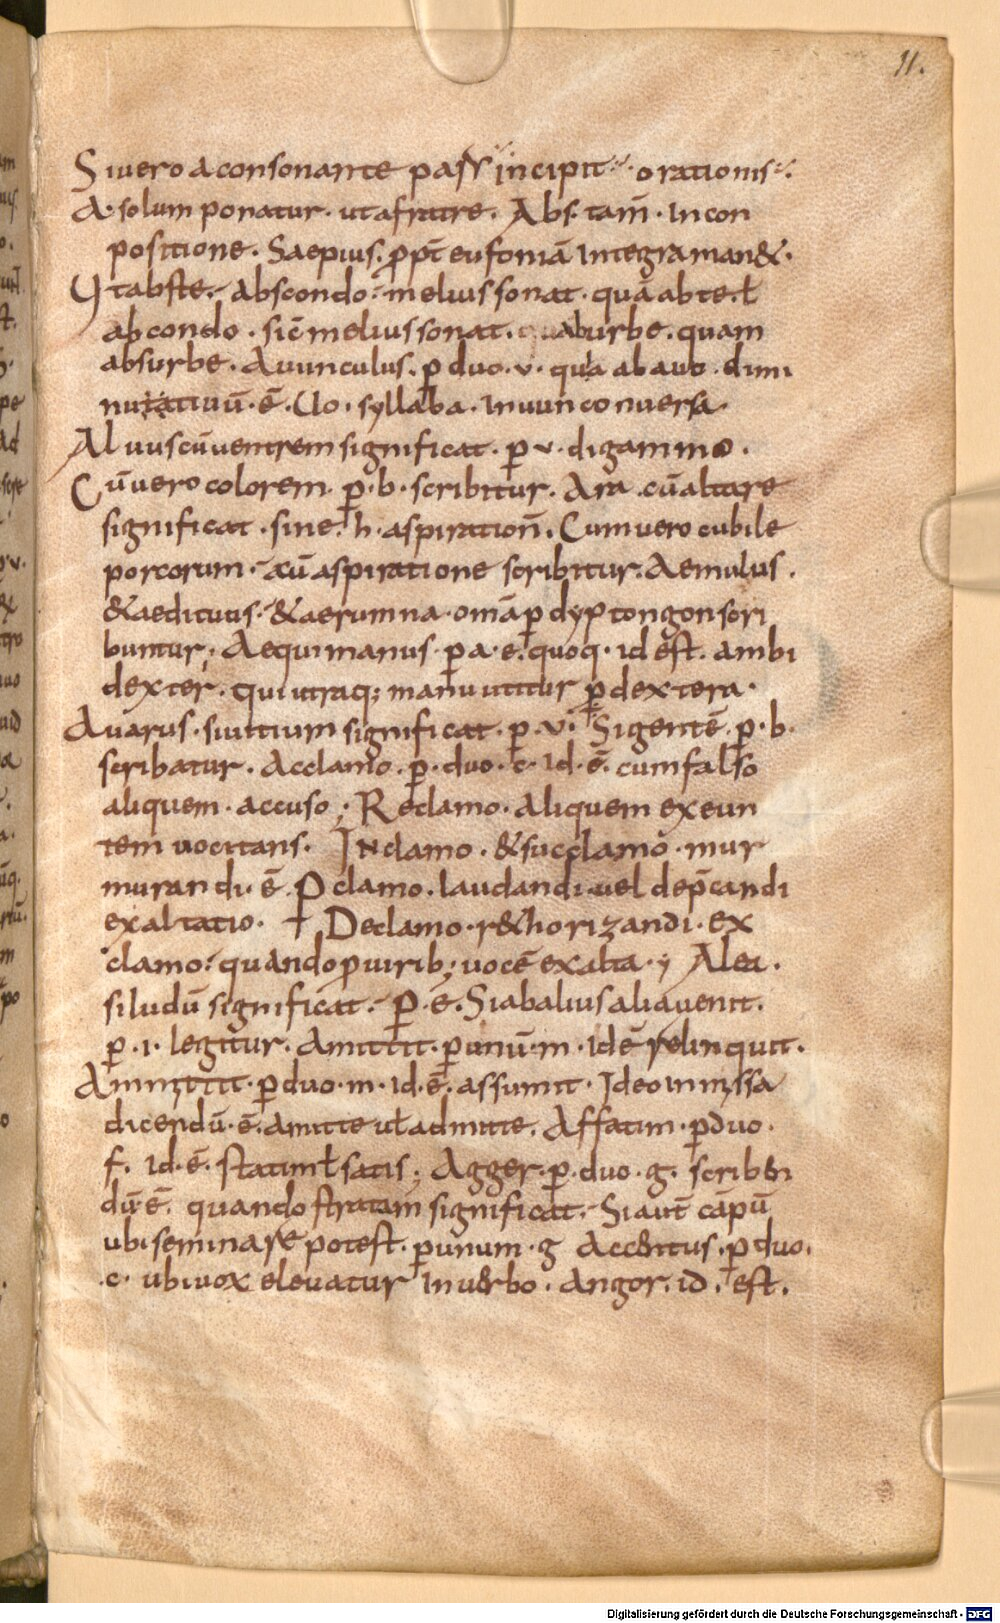 11.
Si uero a consonante pars incipit orationis.
A. solum ponatur. ut a fratre. Abs. tam̄. In con
positione. Saepius. ꝓpt̄ eufoniā integra man&.
Ut abste. abscondo. melius sonat. quā ab te. ł
ab condo. sic̄ melius sonat. ab urbe. quam
abs urbe. Auunculus. ꝑ duo. v. quia ab auo. dimi
nutiuū. ē. Uo. syllaba. In uun conuersa.
Aluus cū uentrem significat. ꝑ v. digammo.
Cū uero colorem. ꝑ. b. scribitur. Ara. cū altare
significat. sine. h. aspiration̄. Cum uero cubile
porcorum. cū aspiratione scribitur. Aemulus.
& aedituus. & aerumna. om̄a ꝑ dyptongon scri
buntur; Aequimanus. ꝑ a. e. quoq. id est. ambi
dexter. qui utraq; manu utitur ꝑ dextera.
Auarus. si uitium significat. ꝑ. v. Si gentē. ꝑ. b.
scribatur. Acclamo. ꝑ. duo. c. Id. ē. cum falso
aliquem. accuso; Reclamo. aliquem exeun
tem uocitans. INclamo. & succlamo. mur
murandi. ē. Ꝓclamo. laudandi. uel dep̄candi
exaltatio. Declamo. r&horizandi. ex
clamo. quando ꝓ uirib; uocē exalta. Alea.
si ludū significat. ꝑ. e. Si ab alius alia uenit.
ꝑ. i. legitur. Amittit. ꝑ unū. m. id ē relinquit.
Ammittit. ꝑ duo. m. id. ē. assumit. Ideo in missa
dicendū. ē. amitte uł admitte. Affatim. ꝑ duo.
f. id. ē. statim ł satis; Agger. ꝑ. duo. g. scriben
dū. ē. quando stratam significat. Si aut̄ cāpū
ubi seminare potest. ꝑ unum. g Accentus. ꝑ duo.
c. ubi uox eleuatur In uerbo. Angor. id. est.
Digitalisierung gefördert durch die Deutsche Forschungsgemeinschaft - DFG